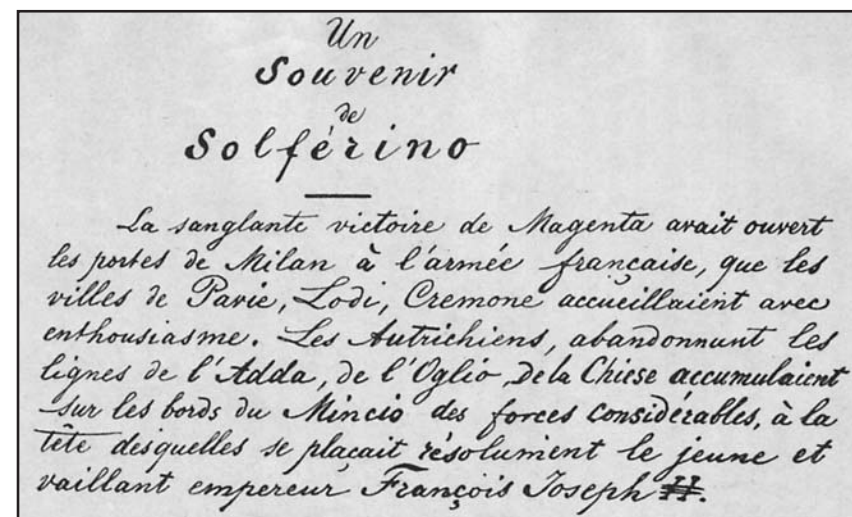 Un
Souvenir
de
Solférino
La sanglante victoire de Magenta avait ouvert
les portes de Milan à l'armée française, que les
villes de Pavie, Lodi, Cremone accueillaient avec
enthousiasme. Les Autrichiens, abandonnant les
lignes de l'Adda, de l'Oglio, de la Chiese accumulaient
sur les bords du Mincio des forces considérables, à la
tête desquelles se plaçait résolument le jeune et
vaillant empereur François Joseph.